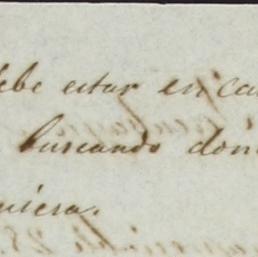 debe estar en ca
buscando don
uiera.